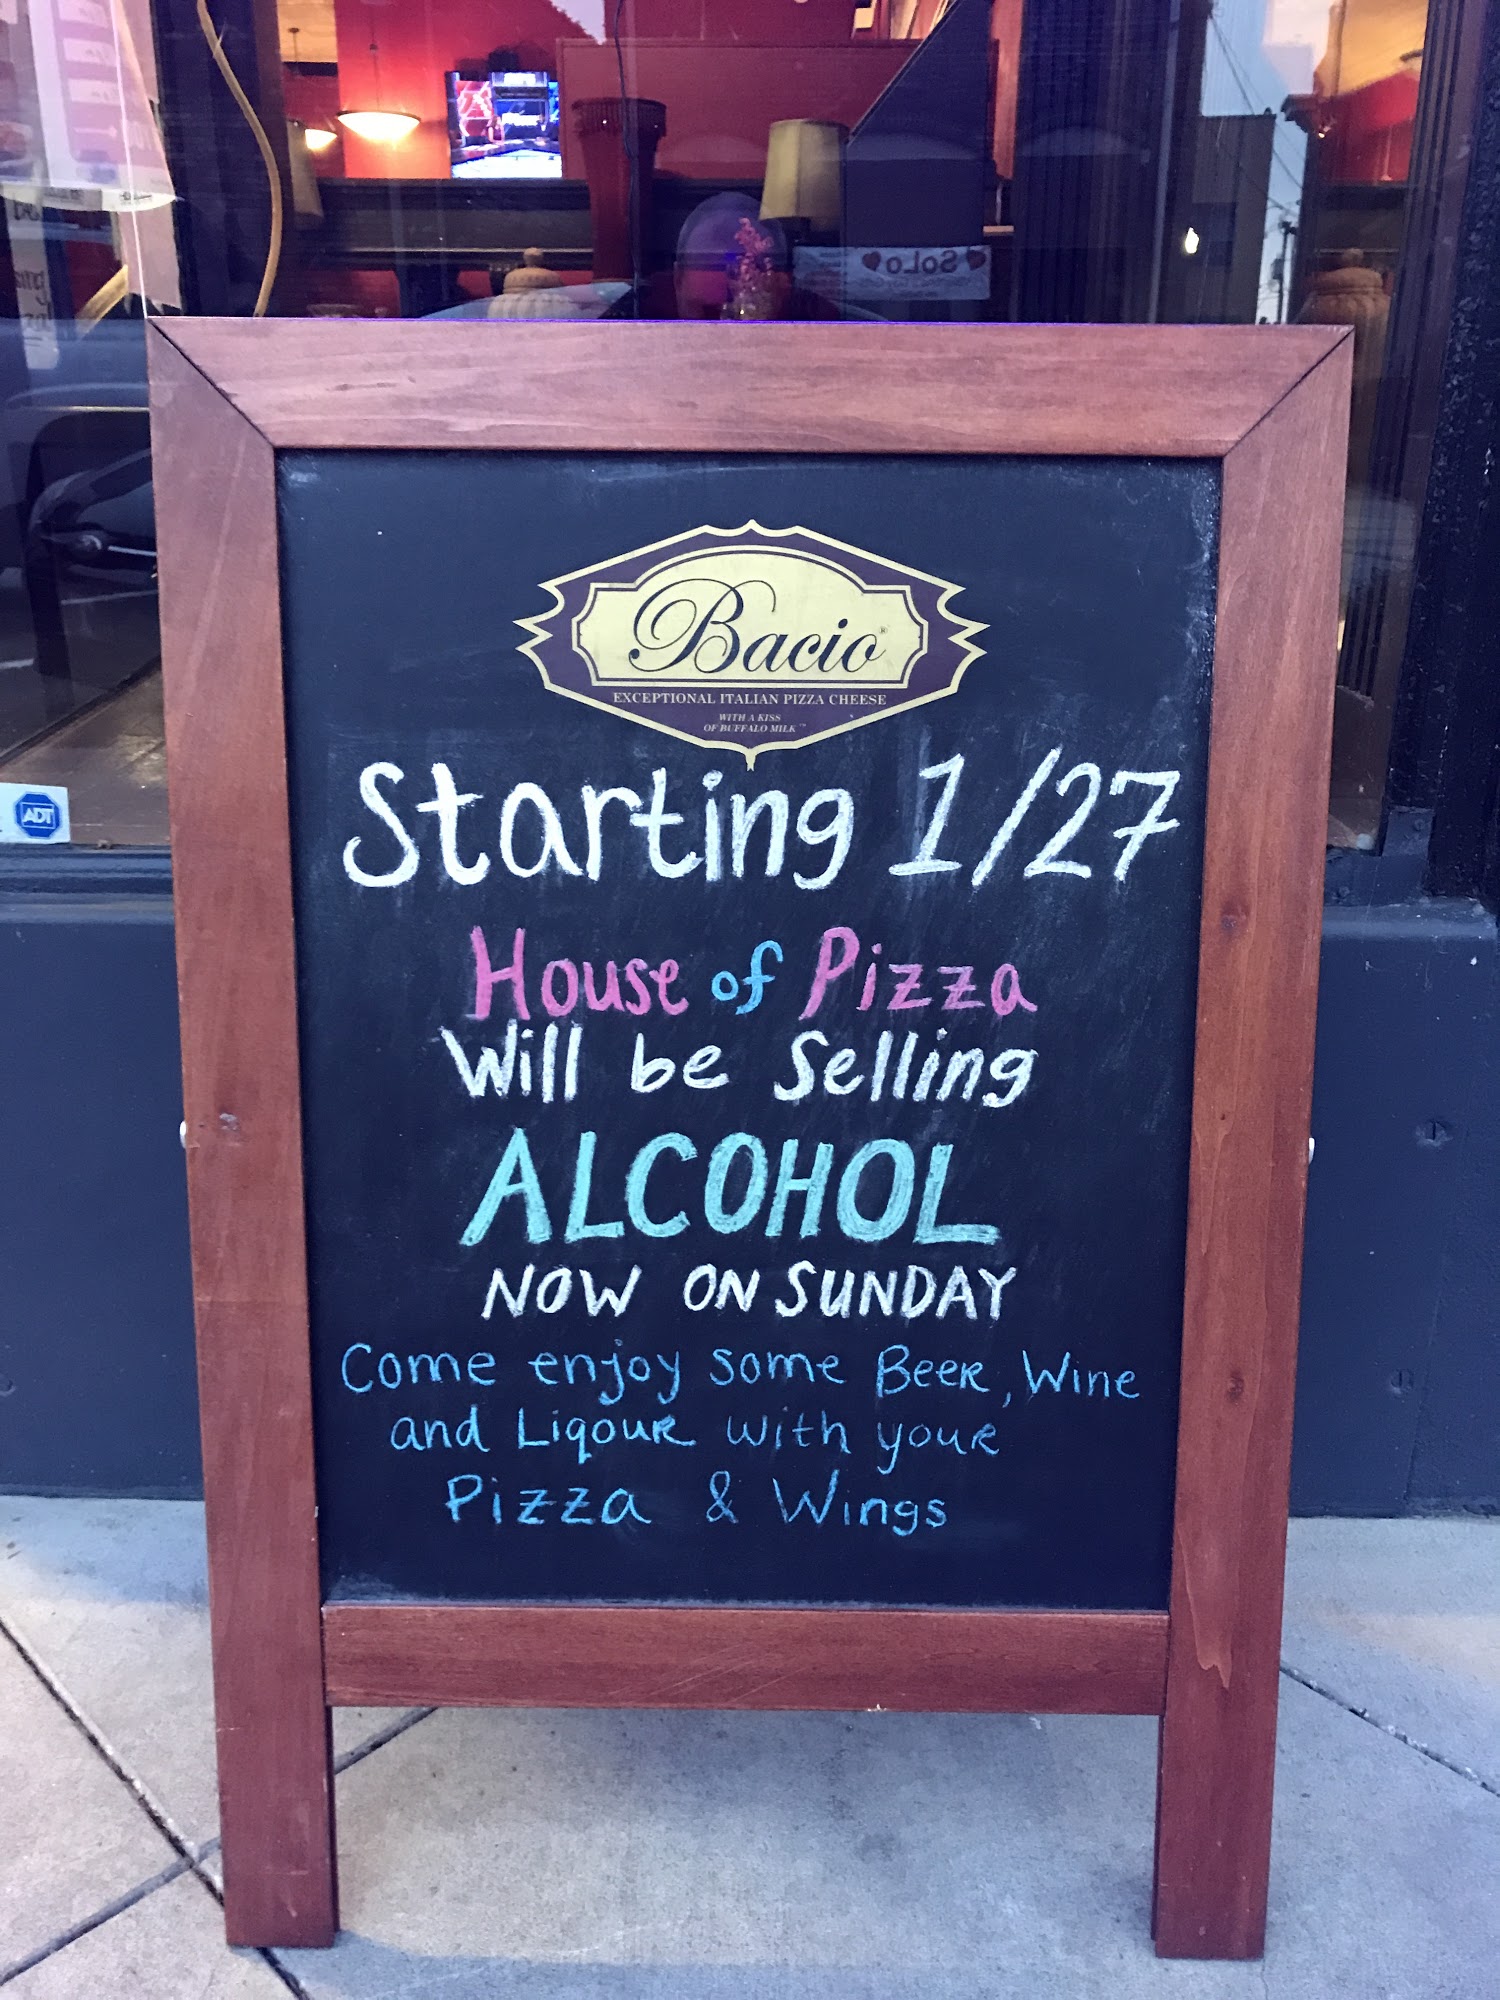 SoLo
ADT
Bacio
EXCEPTIONAL ITALIAN PIZZA CHEESE
WITH A KISS
OF BUFFALO MILK™
Starting 1/27
House of Pizza
Will be Selling
ALCOHOL
NOW ON SUNDAY
Come enjoy some Beer, Wine
and Liqour with your
Pizza & Wings